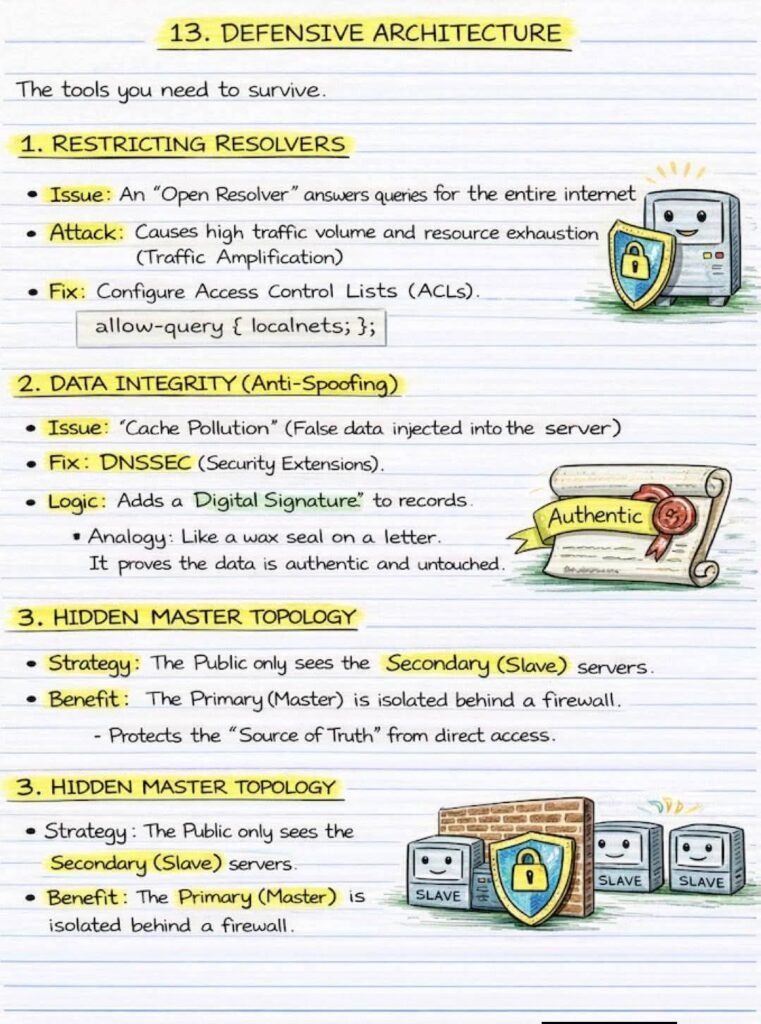 13. DEFENSIVE ARCHITECTURE
The tools you need to survive.
1. RESTRICTING RESOLVERS
• Issue: An “Open Resolver” answers queries for the entire internet
• Attack: Causes high traffic volume and resource exhaustion
(Traffic Amplification)
• Fix: Configure Access Control Lists (ACLs).
allow-query { localnets; };
2. DATA INTEGRITY (Anti-Spoofing)
• Issue: “Cache Pollution” (False data injected into the server)
• Fix: DNSSEC (Security Extensions).
• Logic: Adds a Digital Signature” to records.
▪ Analogy: Like a wax seal on a letter.
It proves the data is authentic and untouched.
Authentic
3. HIDDEN MASTER TOPOLOGY
• Strategy: The Public only sees the Secondary (Slave) servers.
• Benefit: The Primary (Master) is isolated behind a firewall.
- Protects the “Source of Truth” from direct access.
3. HIDDEN MASTER TOPOLOGY
• Strategy: The Public only sees the
Secondary (Slave) servers.
• Benefit: The Primary (Master) is
isolated behind a firewall.
SLAVE
SLAVE
SLAVE